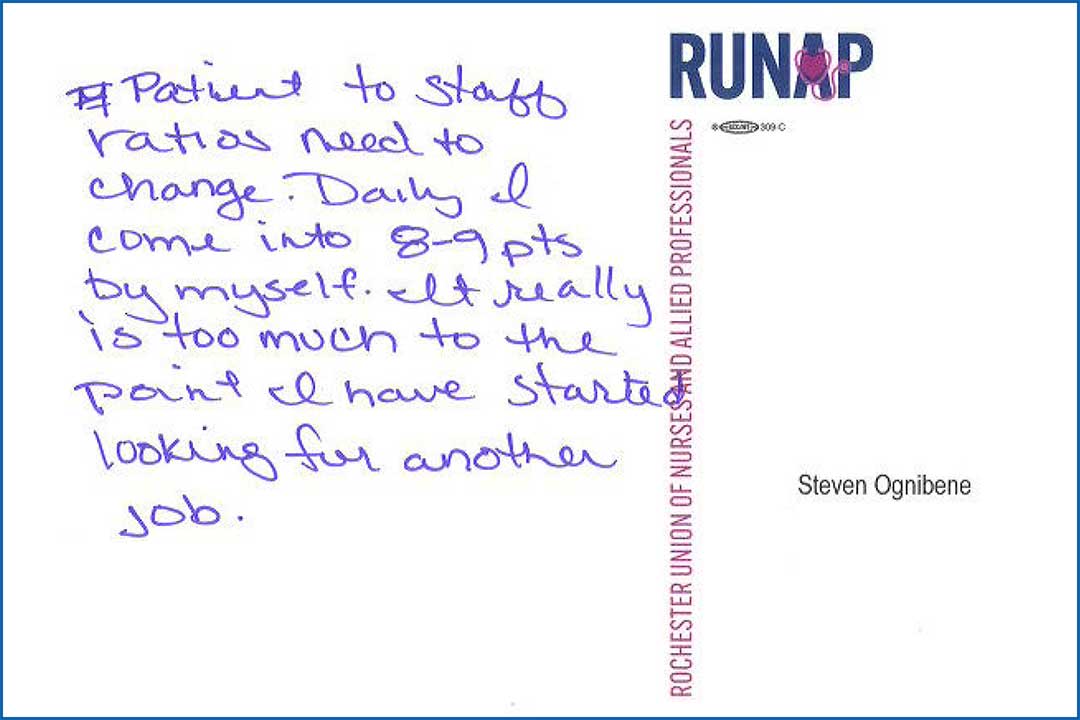 Patient to staff
ratios need to
change. Daily I
come into 8-9 pts
by myself. It really
is too much to the
point I have started
looking for another
job.
RUNAP
309 C
ROCHESTER UNION OF NURSES AND ALLIED PROFESSIONALS
Steven Ognibene